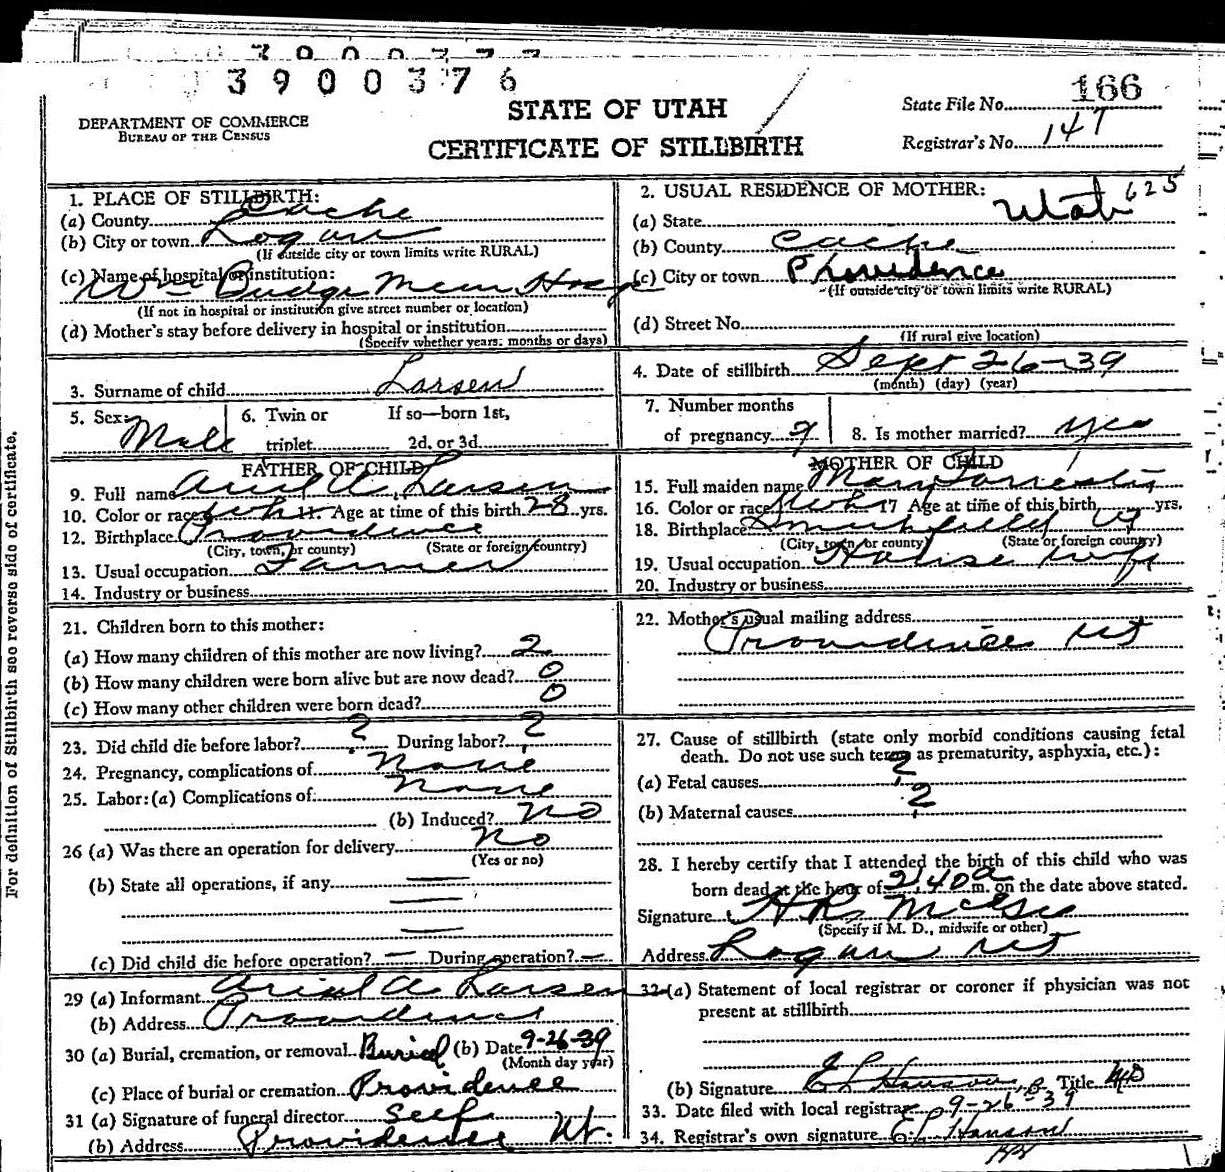 3900377
3900376
STATE OF UTAH
CERTIFICATE OF STILLBIRTH
DEPARTMENT OF COMMERCE
BUREAU OF THE CENSUS
State File No. 166
Registrar's No. 147
1. PLACE OF STILLBIRTH:
(a) County Cache
(b) City or town Logan
(If outside city or town limits write RURAL)
(c) Name of hospital or institution:
Wm Budge Mem Hosp
(If not in hospital or institution give street number or location)
(d) Mother's stay before delivery in hospital or institution
(Specify whether years, months or days)
2. USUAL RESIDENCE OF MOTHER: 625
(a) State Utah
(b) County Cache
(c) City or town Providence
(If outside city or town limits write RURAL)
(d) Street No.
(If rural give location)
3. Surname of child Larsen
4. Date of stillbirth Sept 26-39
(month) (day) (year)
5. Sex: Male
6. Twin or triplet If so—born 1st, 2d, or 3d
7. Number months of pregnancy 9
8. Is mother married? yes
FATHER OF CHILD
9. Full name Ariel A. Larsen
10. Color or race Wh 11. Age at time of this birth 28 yrs.
12. Birthplace Providence
(City, town, or county) (State or foreign country)
13. Usual occupation Farmer
14. Industry or business
MOTHER OF CHILD
15. Full maiden name Mary
16. Color or race Wh 17 Age at time of this birth yrs.
18. Birthplace Smithfield Ut
(City, town, or county) (State or foreign country)
19. Usual occupation House wife
20. Industry or business
21. Children born to this mother:
(a) How many children of this mother are now living? 2
(b) How many children were born alive but are now dead? 0
(c) How many other children were born dead? 0
22. Mother's usual mailing address
Providence Ut
23. Did child die before labor? ? During labor? ?
24. Pregnancy, complications of None
25. Labor: (a) Complications of None
(b) Induced? No
26 (a) Was there an operation for delivery No
(Yes or no)
(b) State all operations, if any
(c) Did child die before operation? — During operation? —
27. Cause of stillbirth (state only morbid conditions causing fetal
death. Do not use such terms as prematurity, asphyxia, etc.):
(a) Fetal causes ?
(b) Maternal causes ?
28. I hereby certify that I attended the birth of this child who was
born dead at the hour of 2:40 a m. on the date above stated.
Signature H R McGee
(Specify if M. D., midwife or other)
Address Logan Ut
29 (a) Informant Ariel A Larsen
(b) Address Providence
30 (a) Burial, cremation, or removal Burial (b) Date 9-26-39
(Month day year)
(c) Place of burial or cremation Providence
31 (a) Signature of funeral director Self
(b) Address Providence Ut.
32 (a) Statement of local registrar or coroner if physician was not
present at stillbirth
(b) Signature E L Hanson Title MD
33. Date filed with local registrar 9-26-39
34. Registrar's own signature E L Hanson
For definition of Stillbirth see reverse side of certificate.